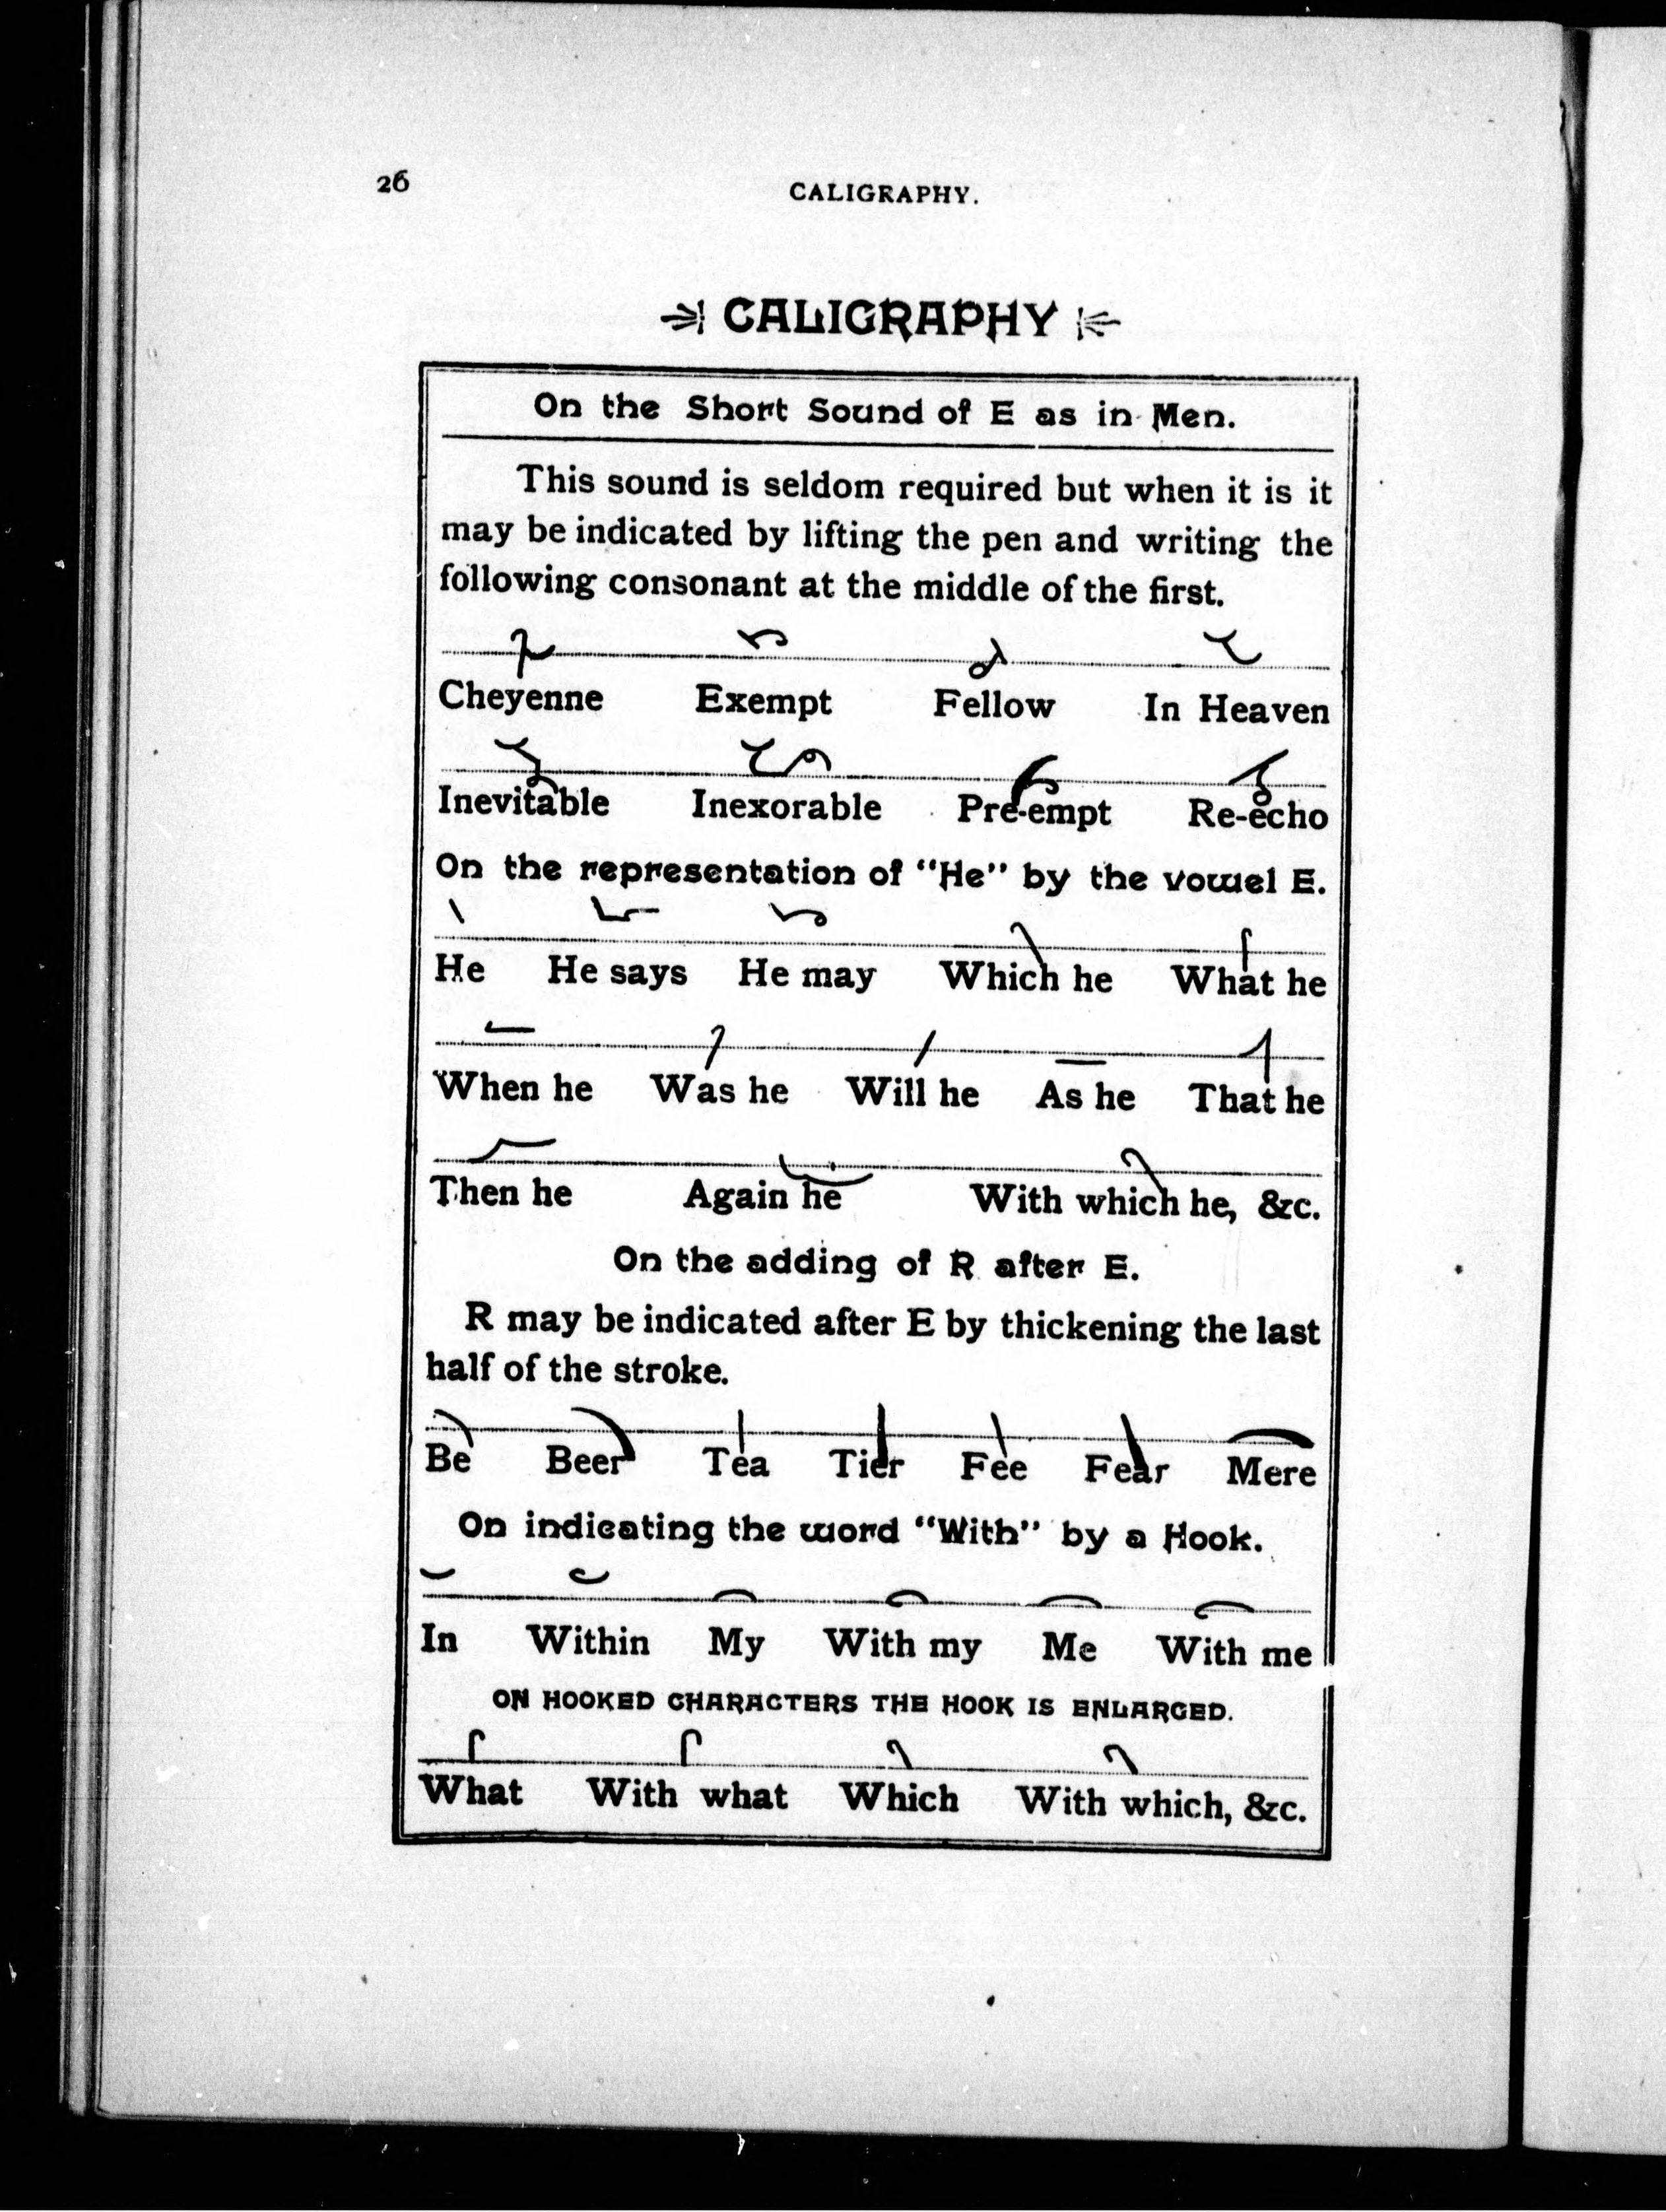 26
CALIGRAPHY.
CALIGRAPHY
On the Short Sound of E as in Men.
This sound is seldom required but when it is it
may be indicated by lifting the pen and writing the
following consonant at the middle of the first.
Cheyenne Exempt Fellow In Heaven
Inevitable Inexorable Pre-empt Re-echo
On the representation of "He" by the vowel E.
He He says He may Which he What he
When he Was he Will he As he That he
Then he Again he With which he, &c.
On the adding of R after E.
R may be indicated after E by thickening the last
half of the stroke.
Be Beer Tea Tier Fee Fear Mere
On indicating the word "With" by a Hook.
In Within My With my Me With me
ON HOOKED CHARACTERS THE HOOK IS ENLARGED.
What With what Which With which, &c.